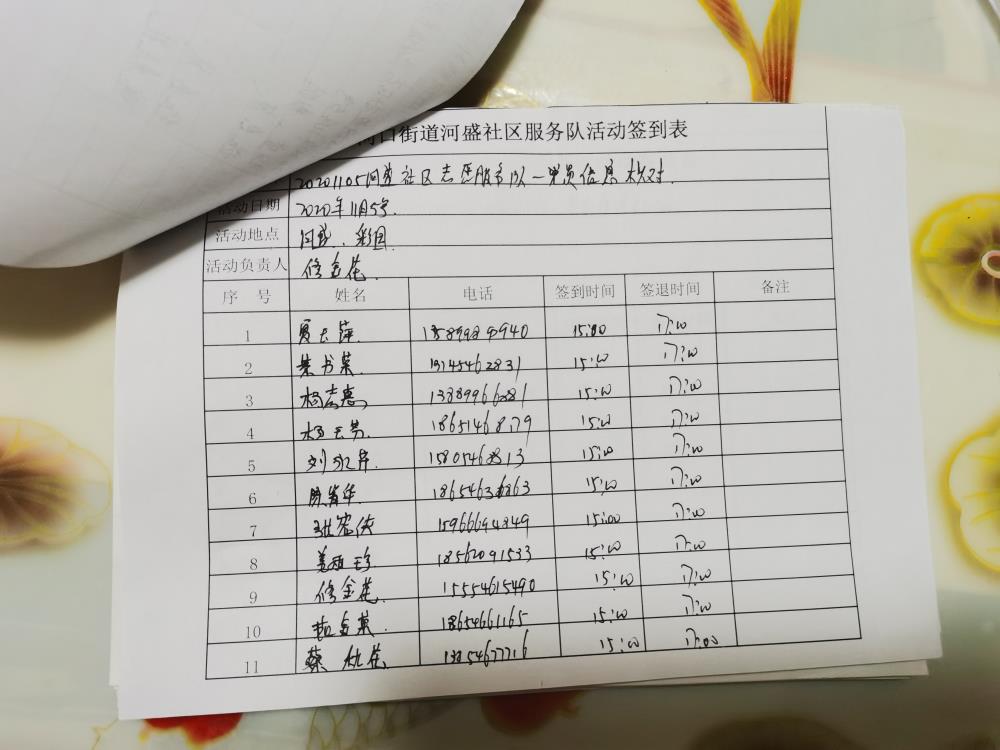 河口街道河盛社区服务队活动签到表
20201105河盛社区志愿服务队一党员信息核对
活动日期 2020年11月5号
活动地点 河盛、彩园
活动负责人 修金花
序 号 姓名 电话 签到时间 签退时间 备注
1 15:00 17:00
2 13145462831 15:00 17:00
3 杨志惠 13889966281 15:00 17:00
4 杨玉芳 15:00 17:00
5 15:00 17:00
6 15:00 17:00
7 15966694849 15:00 17:00
8 姜西珍 18562091533 15:00 17:00
9 修金花 15554615490 15:00 17:00
10 18654661165 15:00 17:00
11 蔡 秋花 13854677716 15:00 17:00